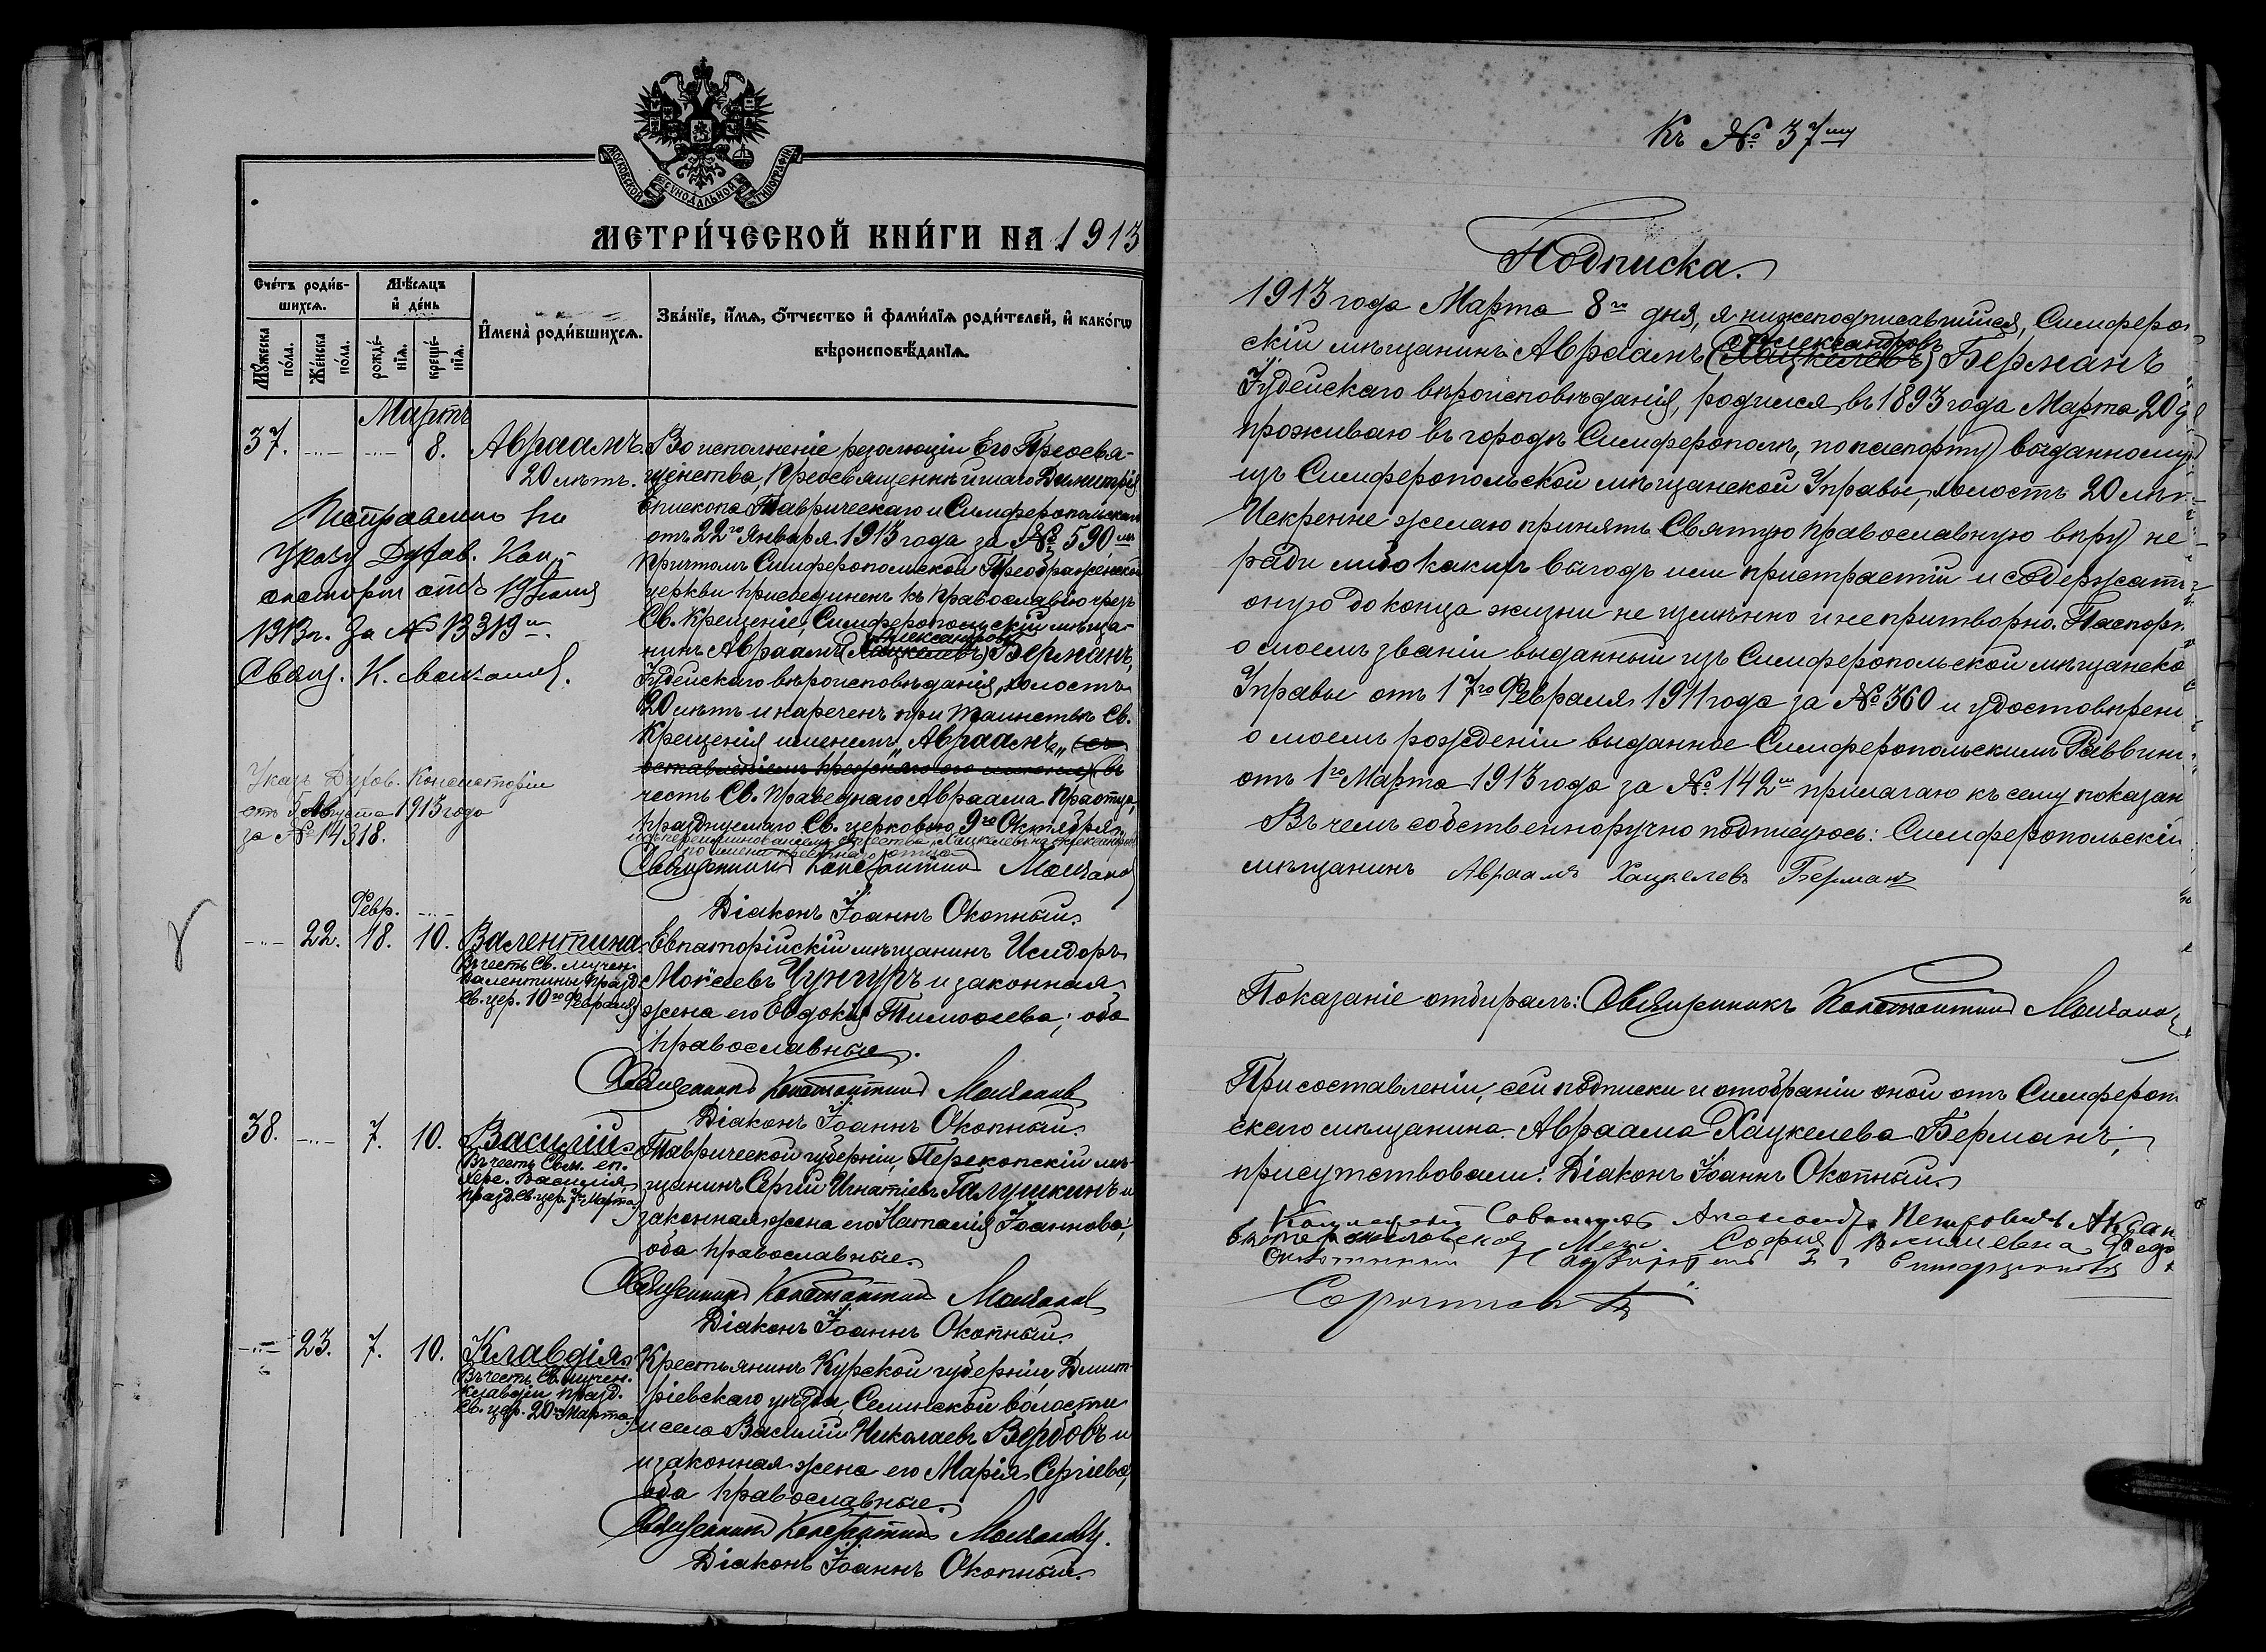 МОСКОВСКОЙ СѴНОДАЛЬНОЙ ТИПОГРАФІИ
МЕТРИ́ЧЕСКОЙ КНИ́ГИ НА 1913
Сче́тъ роди́вшихсѧ.
Мꙋ́жеска по́ла.
Же́нска по́ла.
Мѣ́сѧцъ и҆ де́нь
рожде́нїѧ.
креще́нїѧ.
И҆мена̀ роди́вшихсѧ.
Зва́нїе, и҆́мѧ, ѻ҆́тчество и҆ фами́лїѧ роди́телей, и҆ како́гѡ
вѣроисповѣ́данїѧ.
Мартъ
37. 8. Авраамъ.
20 лѣтъ.
Во исполненіе резолюціи Его Преосвя-
щенства, Преосвященнѣйшаго Димитрія
Епископа Таврическаго и Симферопольскаго
отъ 22го Января 1913 года за № 590мъ
Причтомъ Симферопольской Преображенской
церкви присоединенъ къ Православію чрезъ
Св. Крещеніе, Симферопольскій мѣща-
Александровъ
нинъ Авраамъ (Хацкелевъ) Берманъ,
Іудейскаго вѣроисповѣданія, холостъ
20 лѣтъ и нареченъ при таинствѣ Св.
Крещенія именемъ „Авраамъ„ (съ
оставленіемъ прежняго его имени) въ
честь Св. Праведнаго Авраама Праотца,
празднуемаго Св. церковью 9го Октября,
и съ переименованіемъ отчества „Хацкелевъ на Александровъ
по имени воспріемнаго отца
Священникъ Константинъ Молчановъ
Діаконъ Іоаннъ Окопный.
Исправлено по
Указу Духов. Кон-
систоріи отъ 19 Іюля
1913 г. За № 13319мъ.
Свящ. К. Молчановъ.
Указъ Духов. Консисторіи
отъ 5 Августа 1913 года
за № 14318.
Февр.
22. 18. 10. Валентина
Въ честь Св. мучен.
Валентины празд.
Св. цер. 10го Февраля
Евпаторійскій мѣщанинъ Исидоръ
Моѵсеевъ Чунгуръ и законная
жена его Евдокія Тимоѳеева; оба
православные.
Священникъ Константинъ Молчановъ
Діаконъ Іоаннъ Окопный.
38. 7. 10. Василій
Въ честь Свм. еп.
Херс. Василія
празд. Св. цер. 7го Марта
Таврической губерніи, Перекопскій мѣ-
щанинъ Сергій Игнатіевъ Галушкинъ и
законная жена его Наталія Іоаннова;
оба православные.
Священникъ Константинъ Молчановъ
Діаконъ Іоаннъ Окопный.
23. 7. 10. Клавдія
Въ честь Св. мучен.
Клавдіи празд.
Св. цер. 20го Марта.
Крестьянинъ Курской губерніи, Дмит-
ріевскаго уѣзда, волости
и села Василій Николаевъ Вербовъ и
и законная жена его Марія Сергіева,
оба православные.
Священникъ Константинъ Молчановъ.
Діаконъ Іоаннъ Окопный.
Къ № 37му
Подписка.
1913 года Марта 8го дня, я нижеподписавшійся, Симферо
Александровъ
скій мѣщанинъ Авраамъ (Хацкелевъ) Берманъ
Іудейскаго вѣроисповѣданія, родился въ 1893 года Марта 20 д
проживаю въ городѣ Симферополѣ, по паспорту выданному
изъ Симферопольской мѣщанской Управы, холостъ 20 лѣт
Искренне желаю принять Святую Православную вѣру не
ради либо какихъ выгодъ или пристрастій и содержать
оную до конца жизни не измѣнно и непритворно. Паспорт
о моемъ званіи выданный изъ Симферопольской мѣщанско
Управы отъ 17го Февраля 1911 года за № 360 и удостовѣрен
о моемъ рожденіи выданное Симферопольскимъ Раввин
отъ 1го Марта 1913 года за № 142мъ прилагаю къ сему показан
Въ чемъ собственноручно подписуюсь: Симферопольскій
мѣщанинъ Авраамъ Хацкелевъ Берманъ
Показаніе отбиралъ: Священникъ Константинъ Молчановъ
При составленіи, сей подписки и отобраніи оной отъ Симфероп
скаго мѣщанина Авраама Хацкелева Берманъ,
присутствовали: Діаконъ Іоаннъ Окопный.
Совѣтникъ Александръ Петровичъ
София Васильевна